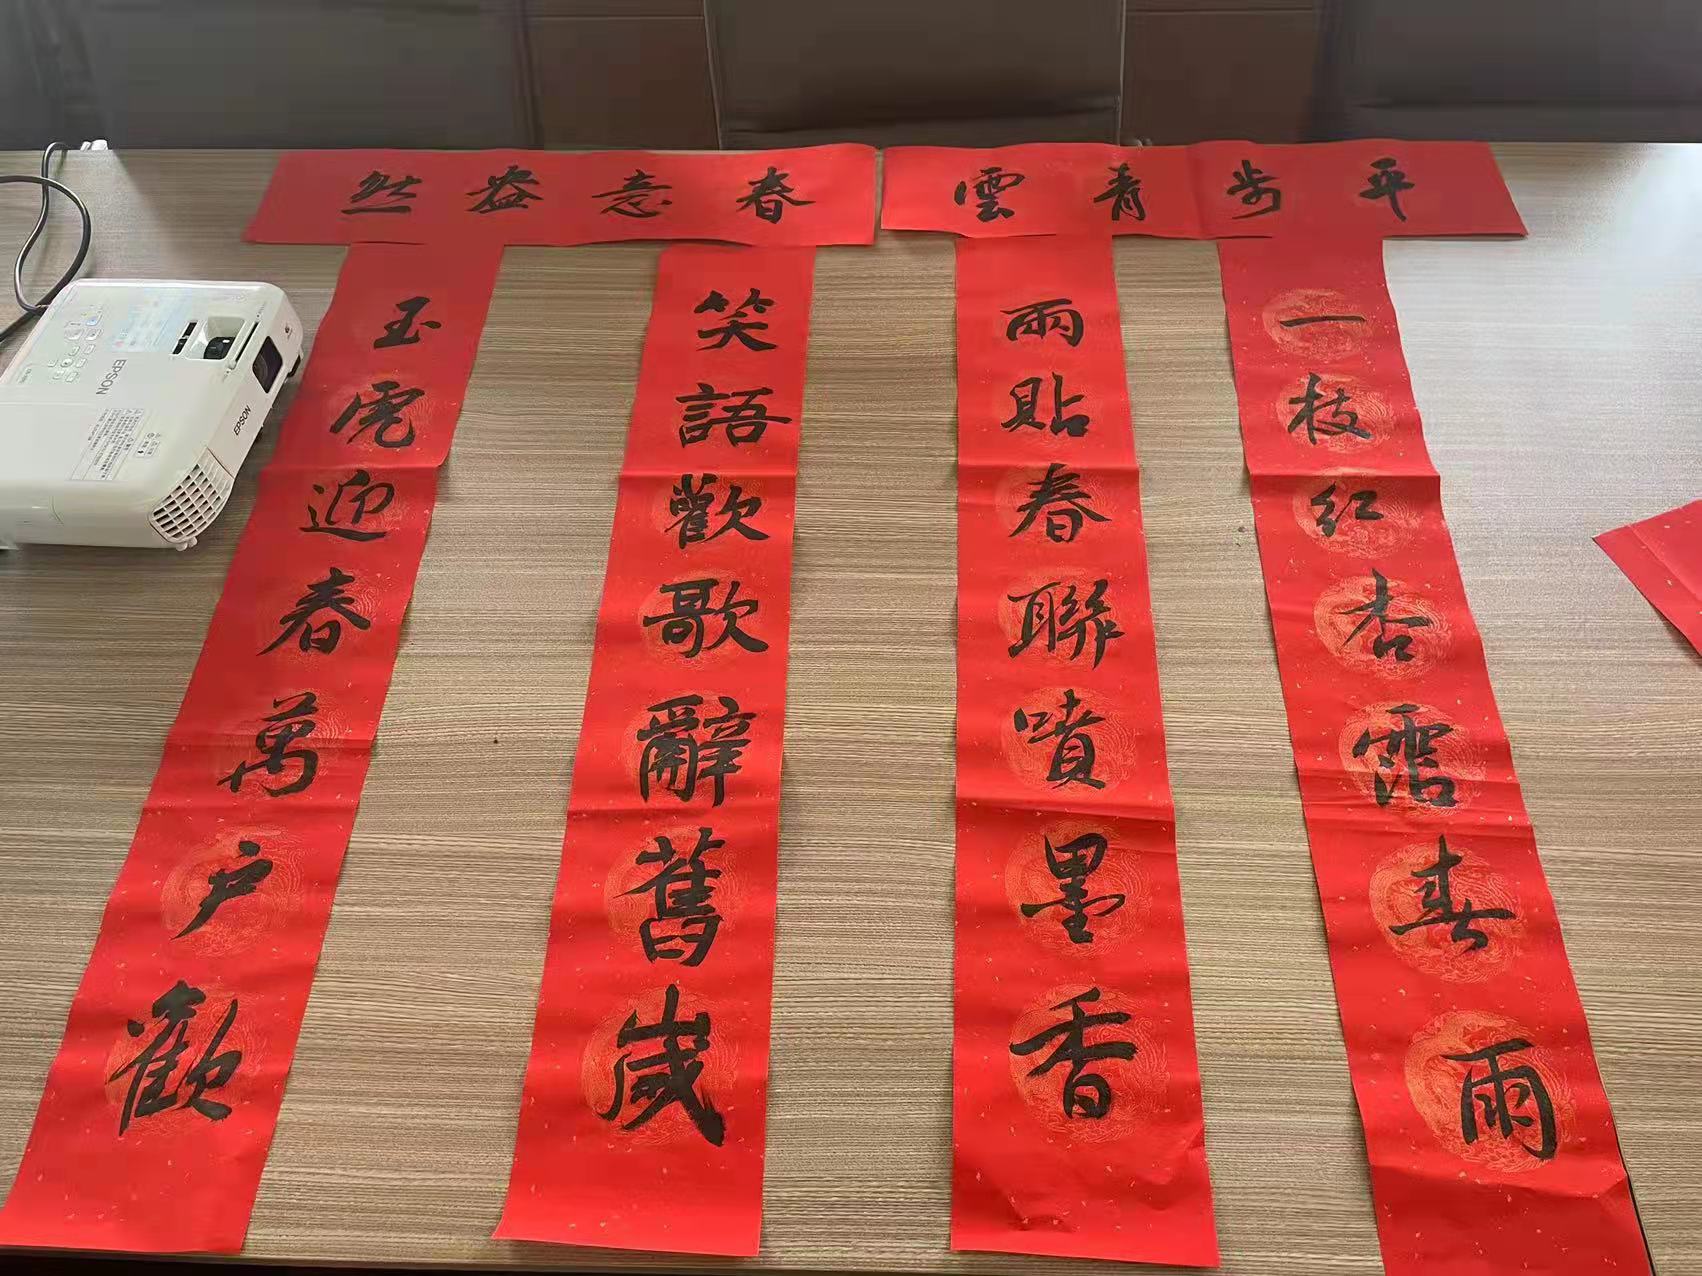 平步青雲
一枝红杏霑春雨
兩貼春聯噴墨香
春意盎然
笑語歡歌辭舊歲
玉虎迎春萬户歡
EPSON
EPSON